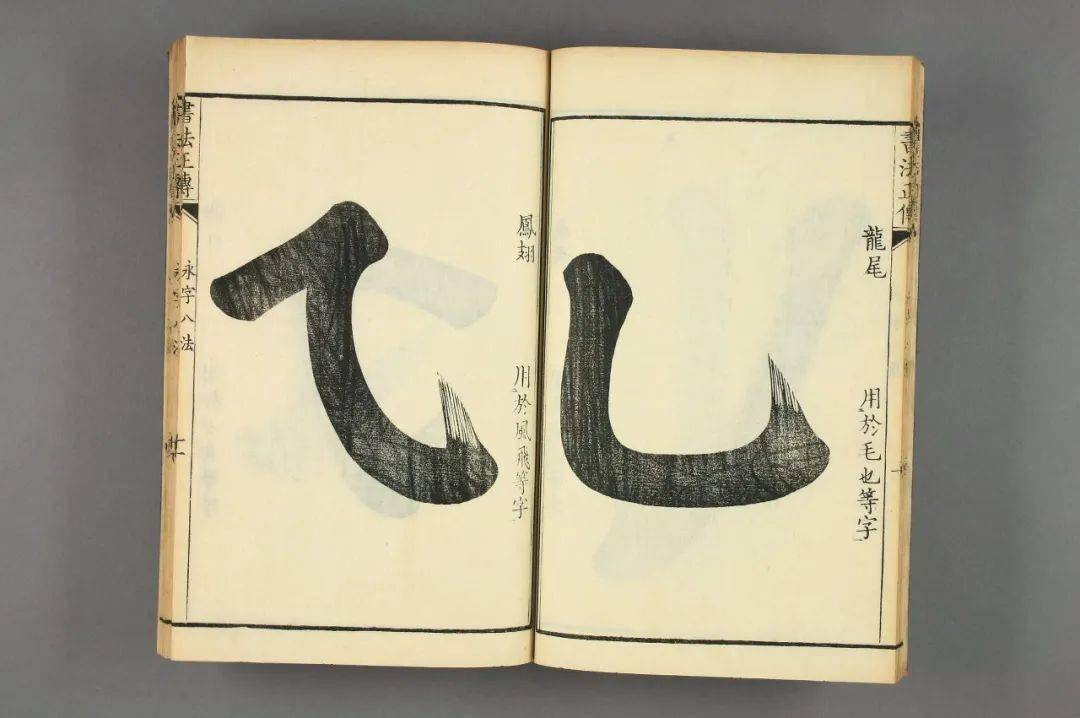 書法正傳
龍尾
用於毛也等字
鳳翅
用於風飛等字
書法正傳
永字八法